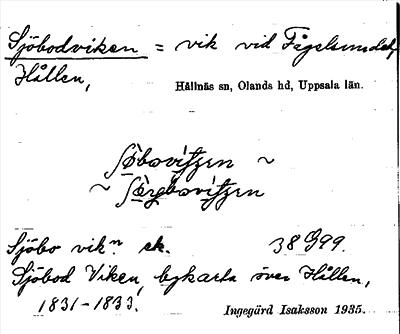 Sjöbodviken = vik vid Fågelsundet,
Hållen,
Hållnäs sn, Olands hd, Uppsala län.
~
~
Sjöbo vikⁿ ek. 38 G 99.
Sjöbod Viken, bykarta över Hållen,
1831-1833.
Ingegärd Isaksson 1935.